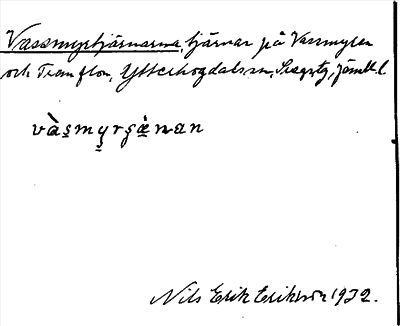 Vassmyrtjärnarna, tjärnar på Vassmyren
och Tranflon, Ytterhogdals sn, Svegs tg, Jämtl. l.
vàs̱my̱rʂæ̱̀nan
Nils Erik Eriksson 1932.